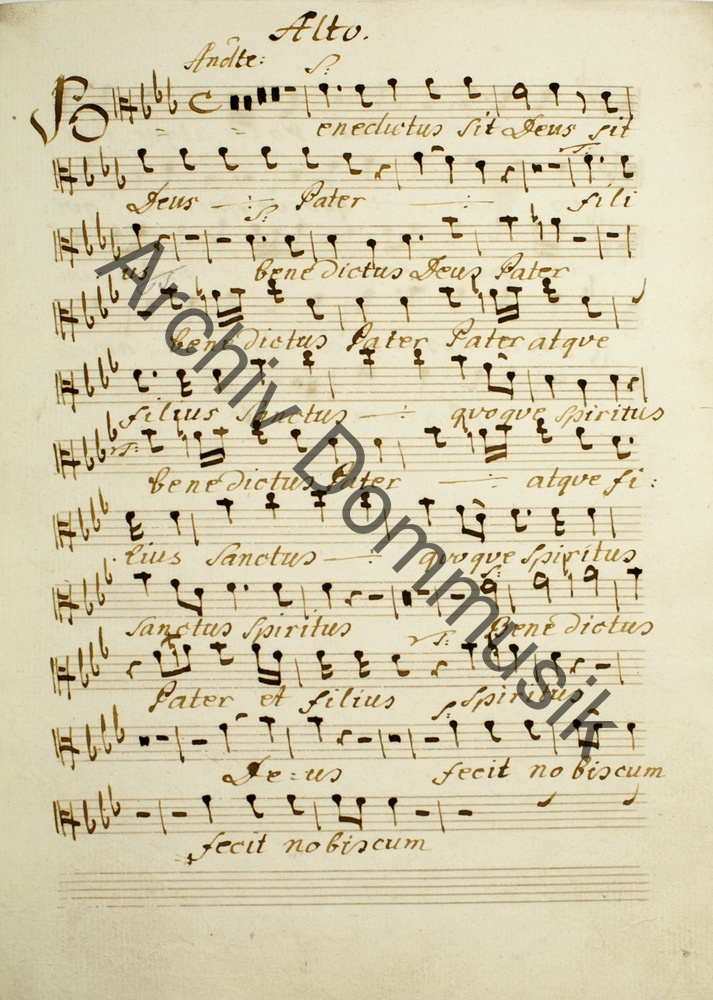 Alto.
Andte: S:
Benedictus sit Deus sit
T:
Deus —:— Pater —:— fili
S:
us T: benedictus Deus Pater
benedictus Pater Pater atque
filius Sanctus —:— quoque Spiritus
T:
benedictus Pater —:— atque fi:
lius Sanctus —:— quoque Spiritus
S:
Sanctus Spiritus Benedictus
T:
Pater et filius Spiritus
S:
De=us fecit nobiscum
fecit nobiscum
Archiv Dommusik